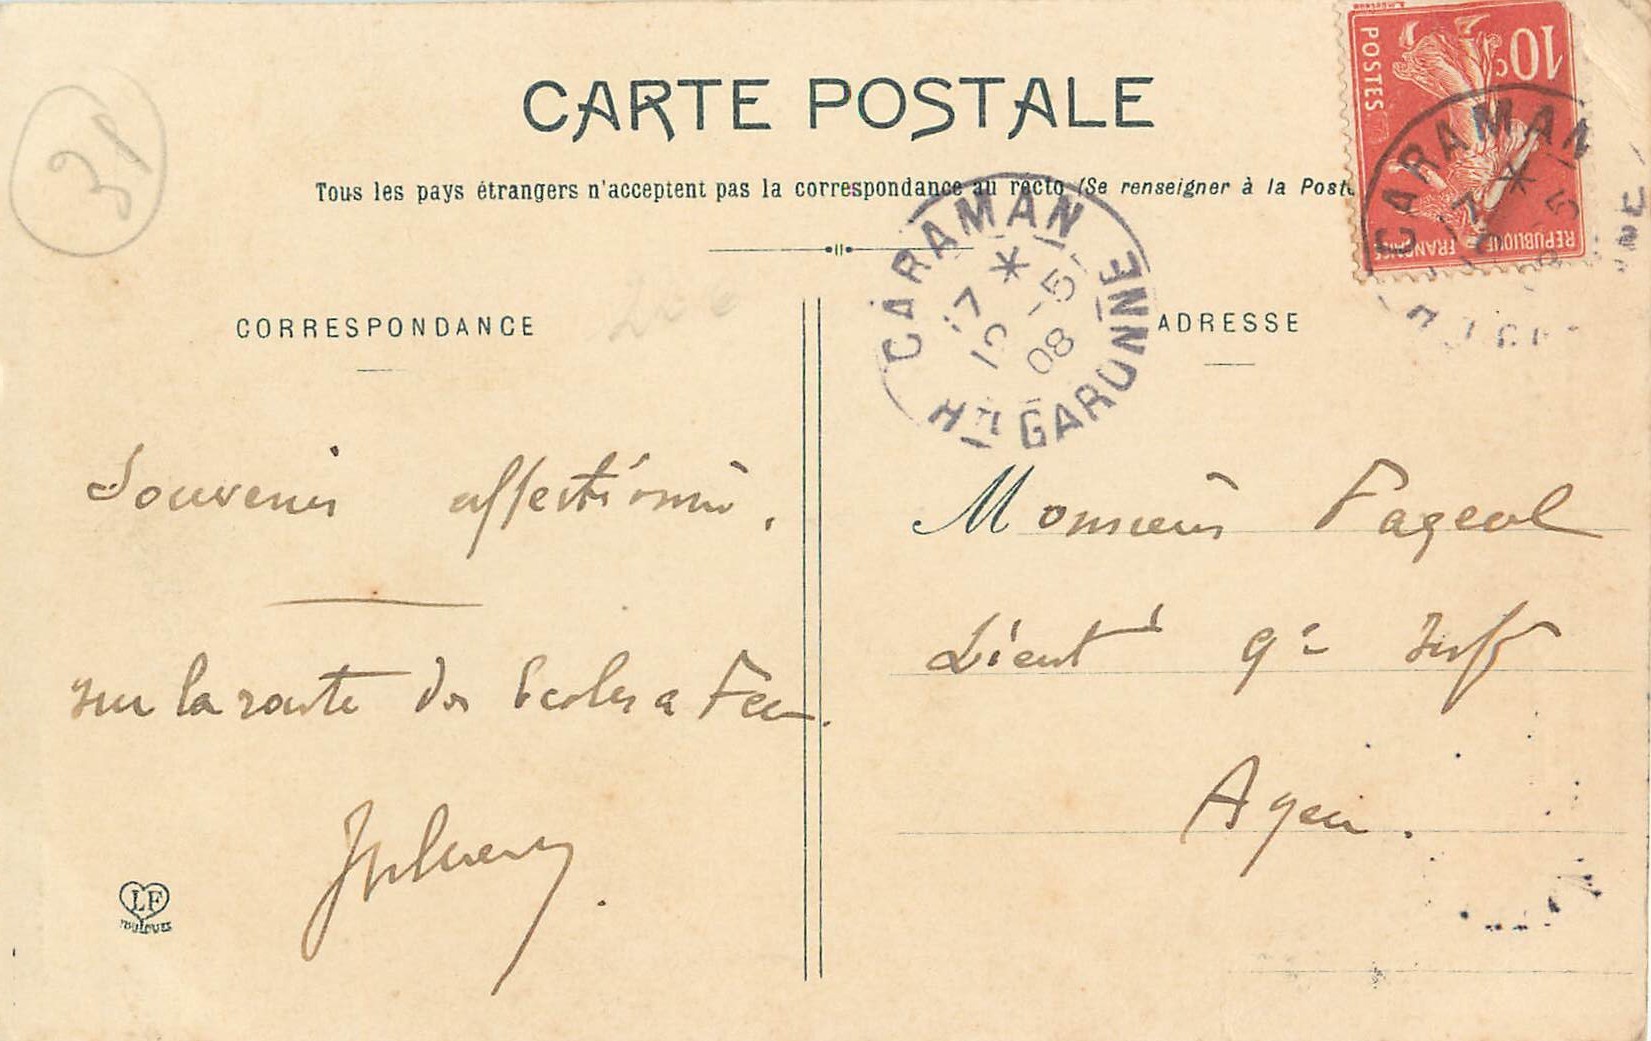 31
CARTE POSTALE
Tous les pays étrangers n'acceptent pas la correspondance au recto (Se renseigner à la Poste
10c
POSTES
REPUBLIQUE FRANÇAISE
CARAMAN
CARAMAN
17 * 5
10 08
Hte GARONNE
CORRESPONDANCE
ADRESSE
Souvenir affectionné.
sur la route des Ecoles a Feu.
Monsieur Fageol
Lieut 9e
Agen.
LF
TOULOUSE